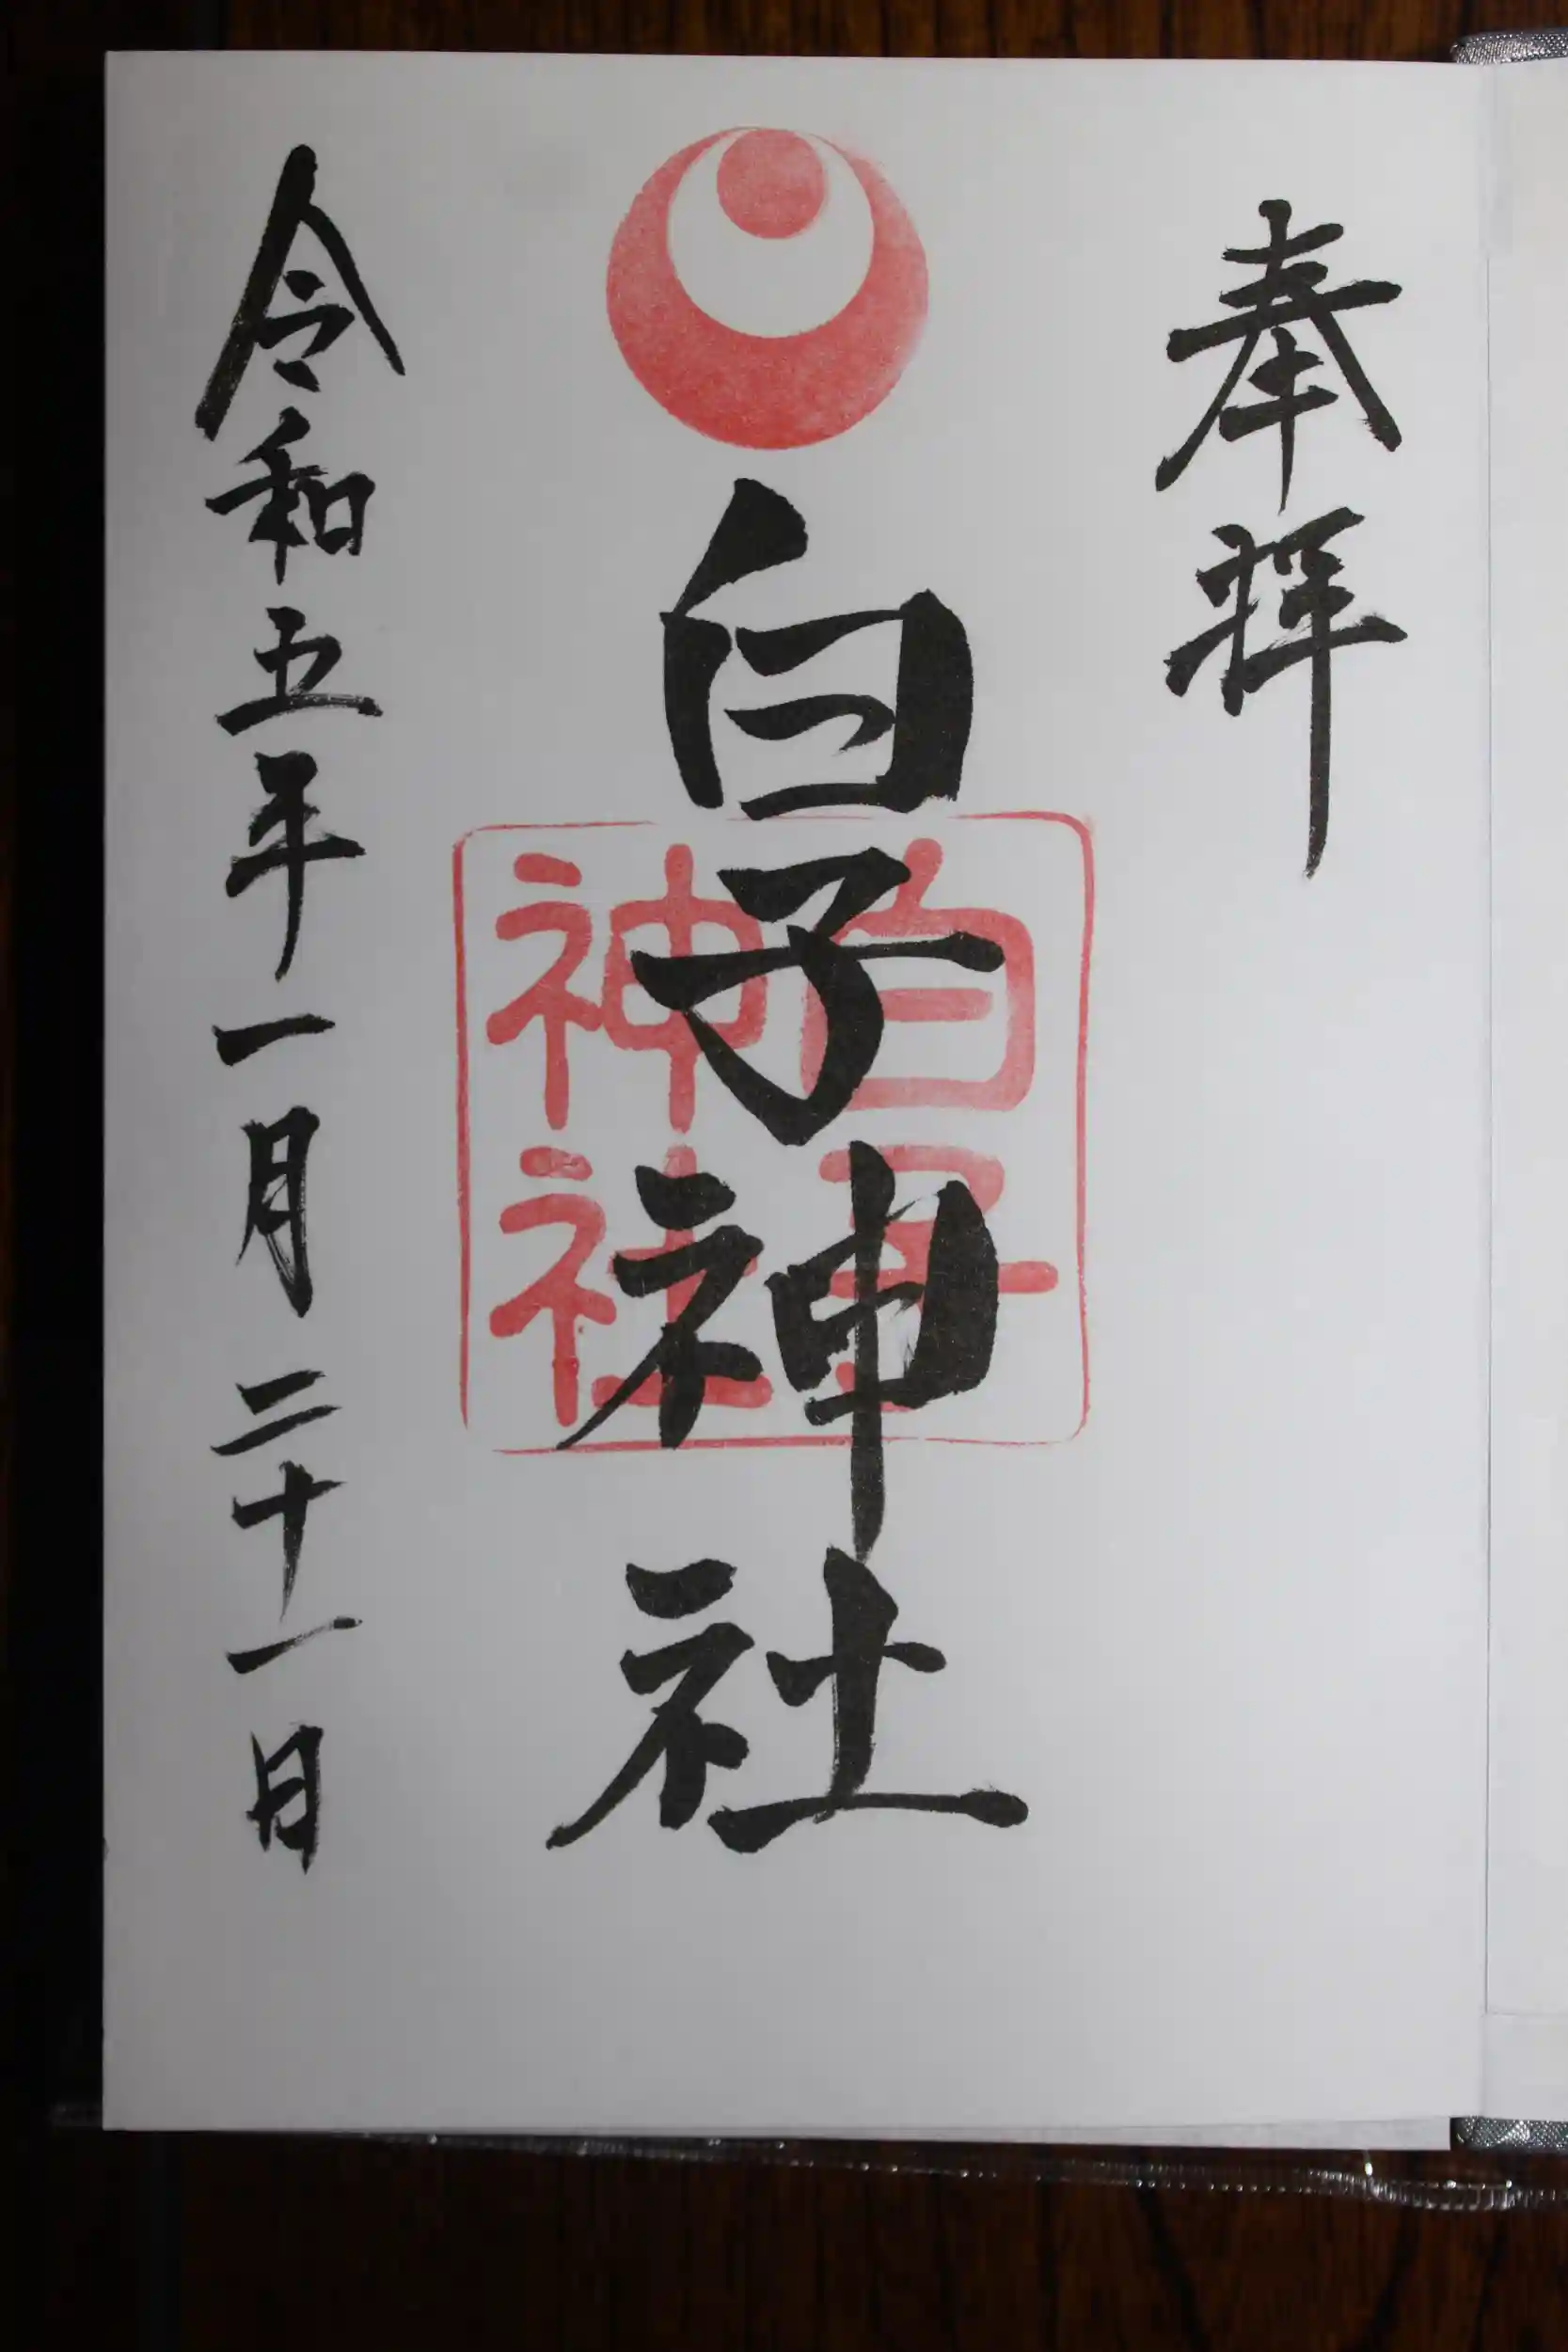 奉拝
白子神社
白子
神社
令和五年一月二十一日